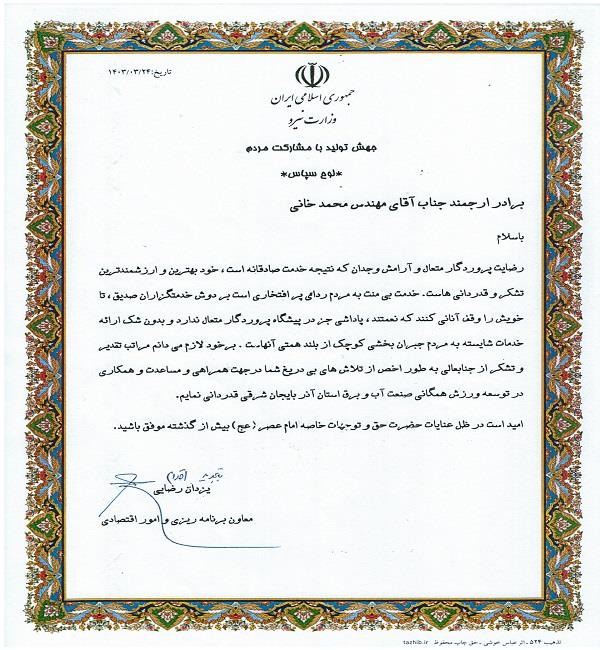 تاریخ:۱۴۰۳/۰۳/۲۴
جمهوری اسلامی ایران
وزارت نیرو
جهش تولید با مشارکت مردم
*لوح سپاس*
برادر ارجمند جناب آقای مهندس محمد خانی
باسلام
رضایت پروردگار متعال و آرامش وجدان که نتیجه خدمت صادقانه است ، خود بهترین و ارزشمندترین
تشکر و قدردانی هاست. خدمت بی منت به مردم ردای پر افتخاری است بر دوش خدمتگزاران صدیق ، تا
خویش را وقف آنانی کنند که نعمتند ، پاداشی جز در پیشگاه پروردگار متعال ندارد و بدون شک ارائه
خدمات شایسته به مردم جبران بخشی کوچک از بلند همتی آنهاست . برخود لازم می دانم مراتب تقدیر
و تشکر از جنابعالی به طور اخص از تلاش های بی دریغ شما درجهت همراهی و مساعدت و همکاری
در توسعه ورزش همگانی صنعت آب و برق استان آذربایجان شرقی قدردانی نمایم.
امید است در ظل عنایات حضرت حق و توجهات خاصه امام عصر (عج) بیش از گذشته موفق باشید.
یزدان رضایی
معاون برنامه ریزی و امور اقتصادی
تذهیب ۵۲۴ ـ اثر عباس خوشی ـ حق چاپ محفوظ tazhib.ir